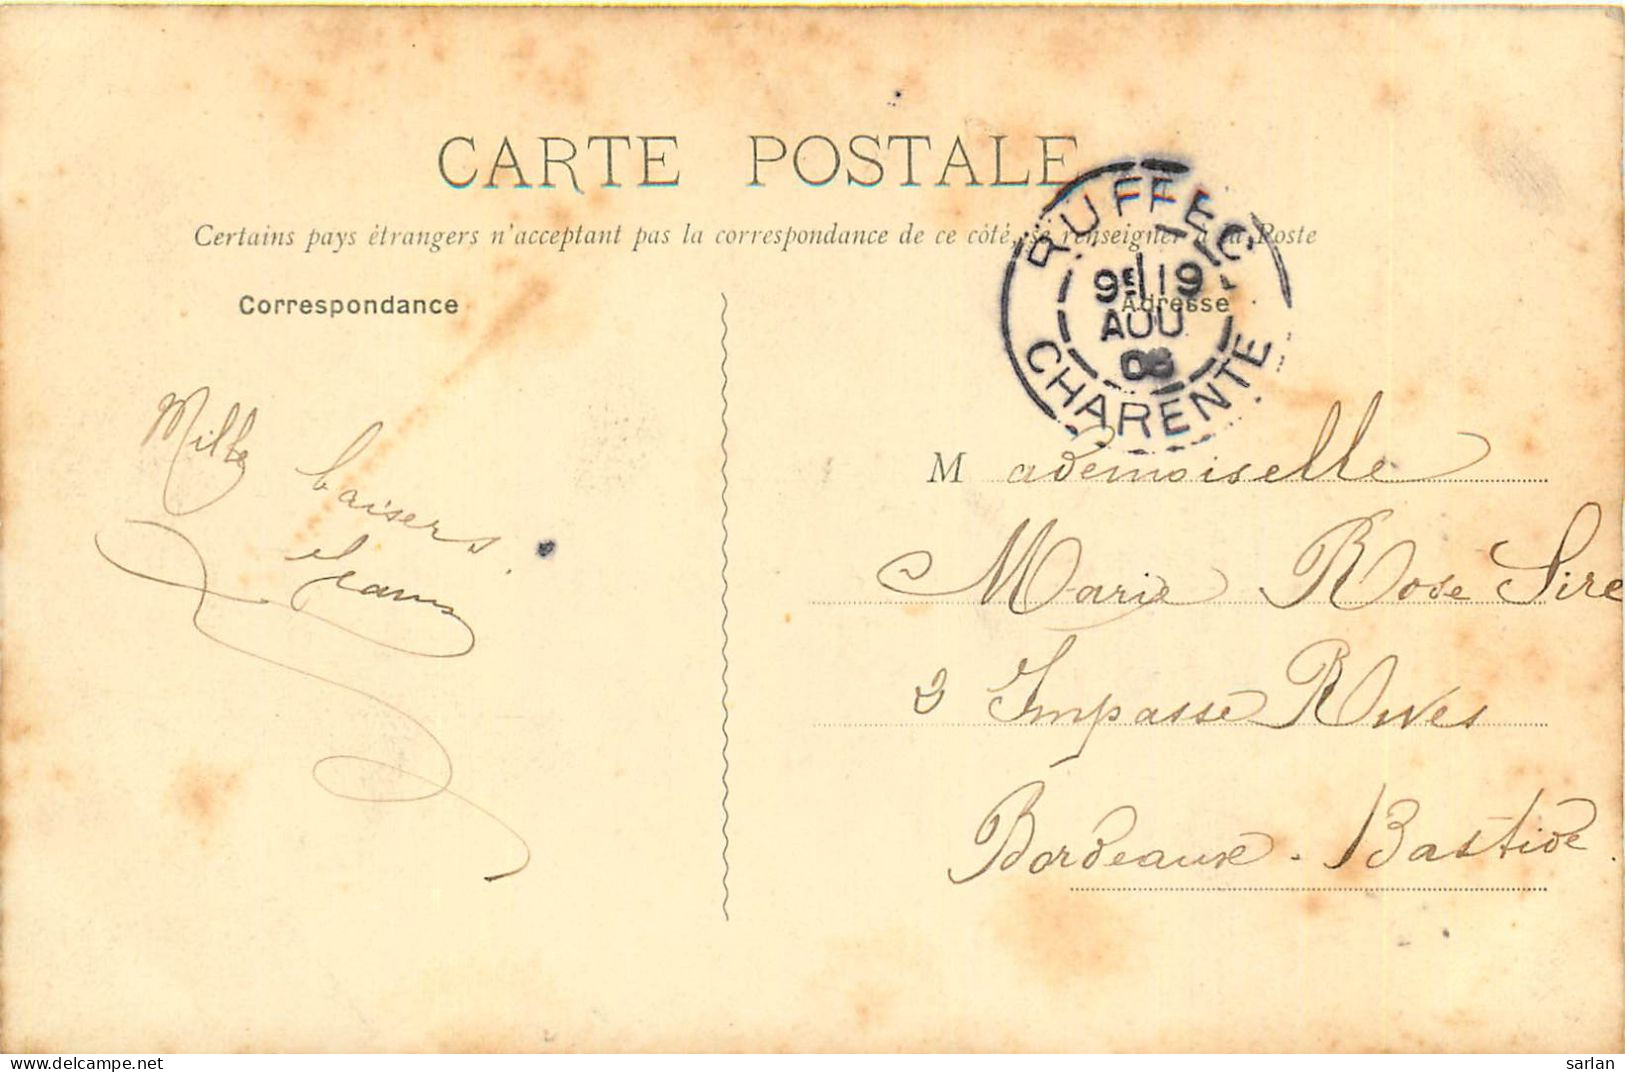 CARTE POSTALE
Certains pays étrangers n'acceptant pas la correspondance de ce côté, se renseigner à la Poste
Correspondance
Adresse
RUFFEC
9E 19
AOU
CHARENTE
Mille
baisers.
Mademoiselle
Marie Rose Sire
2 Impasse Rives
Bordeaux-Bastide.
sarlan